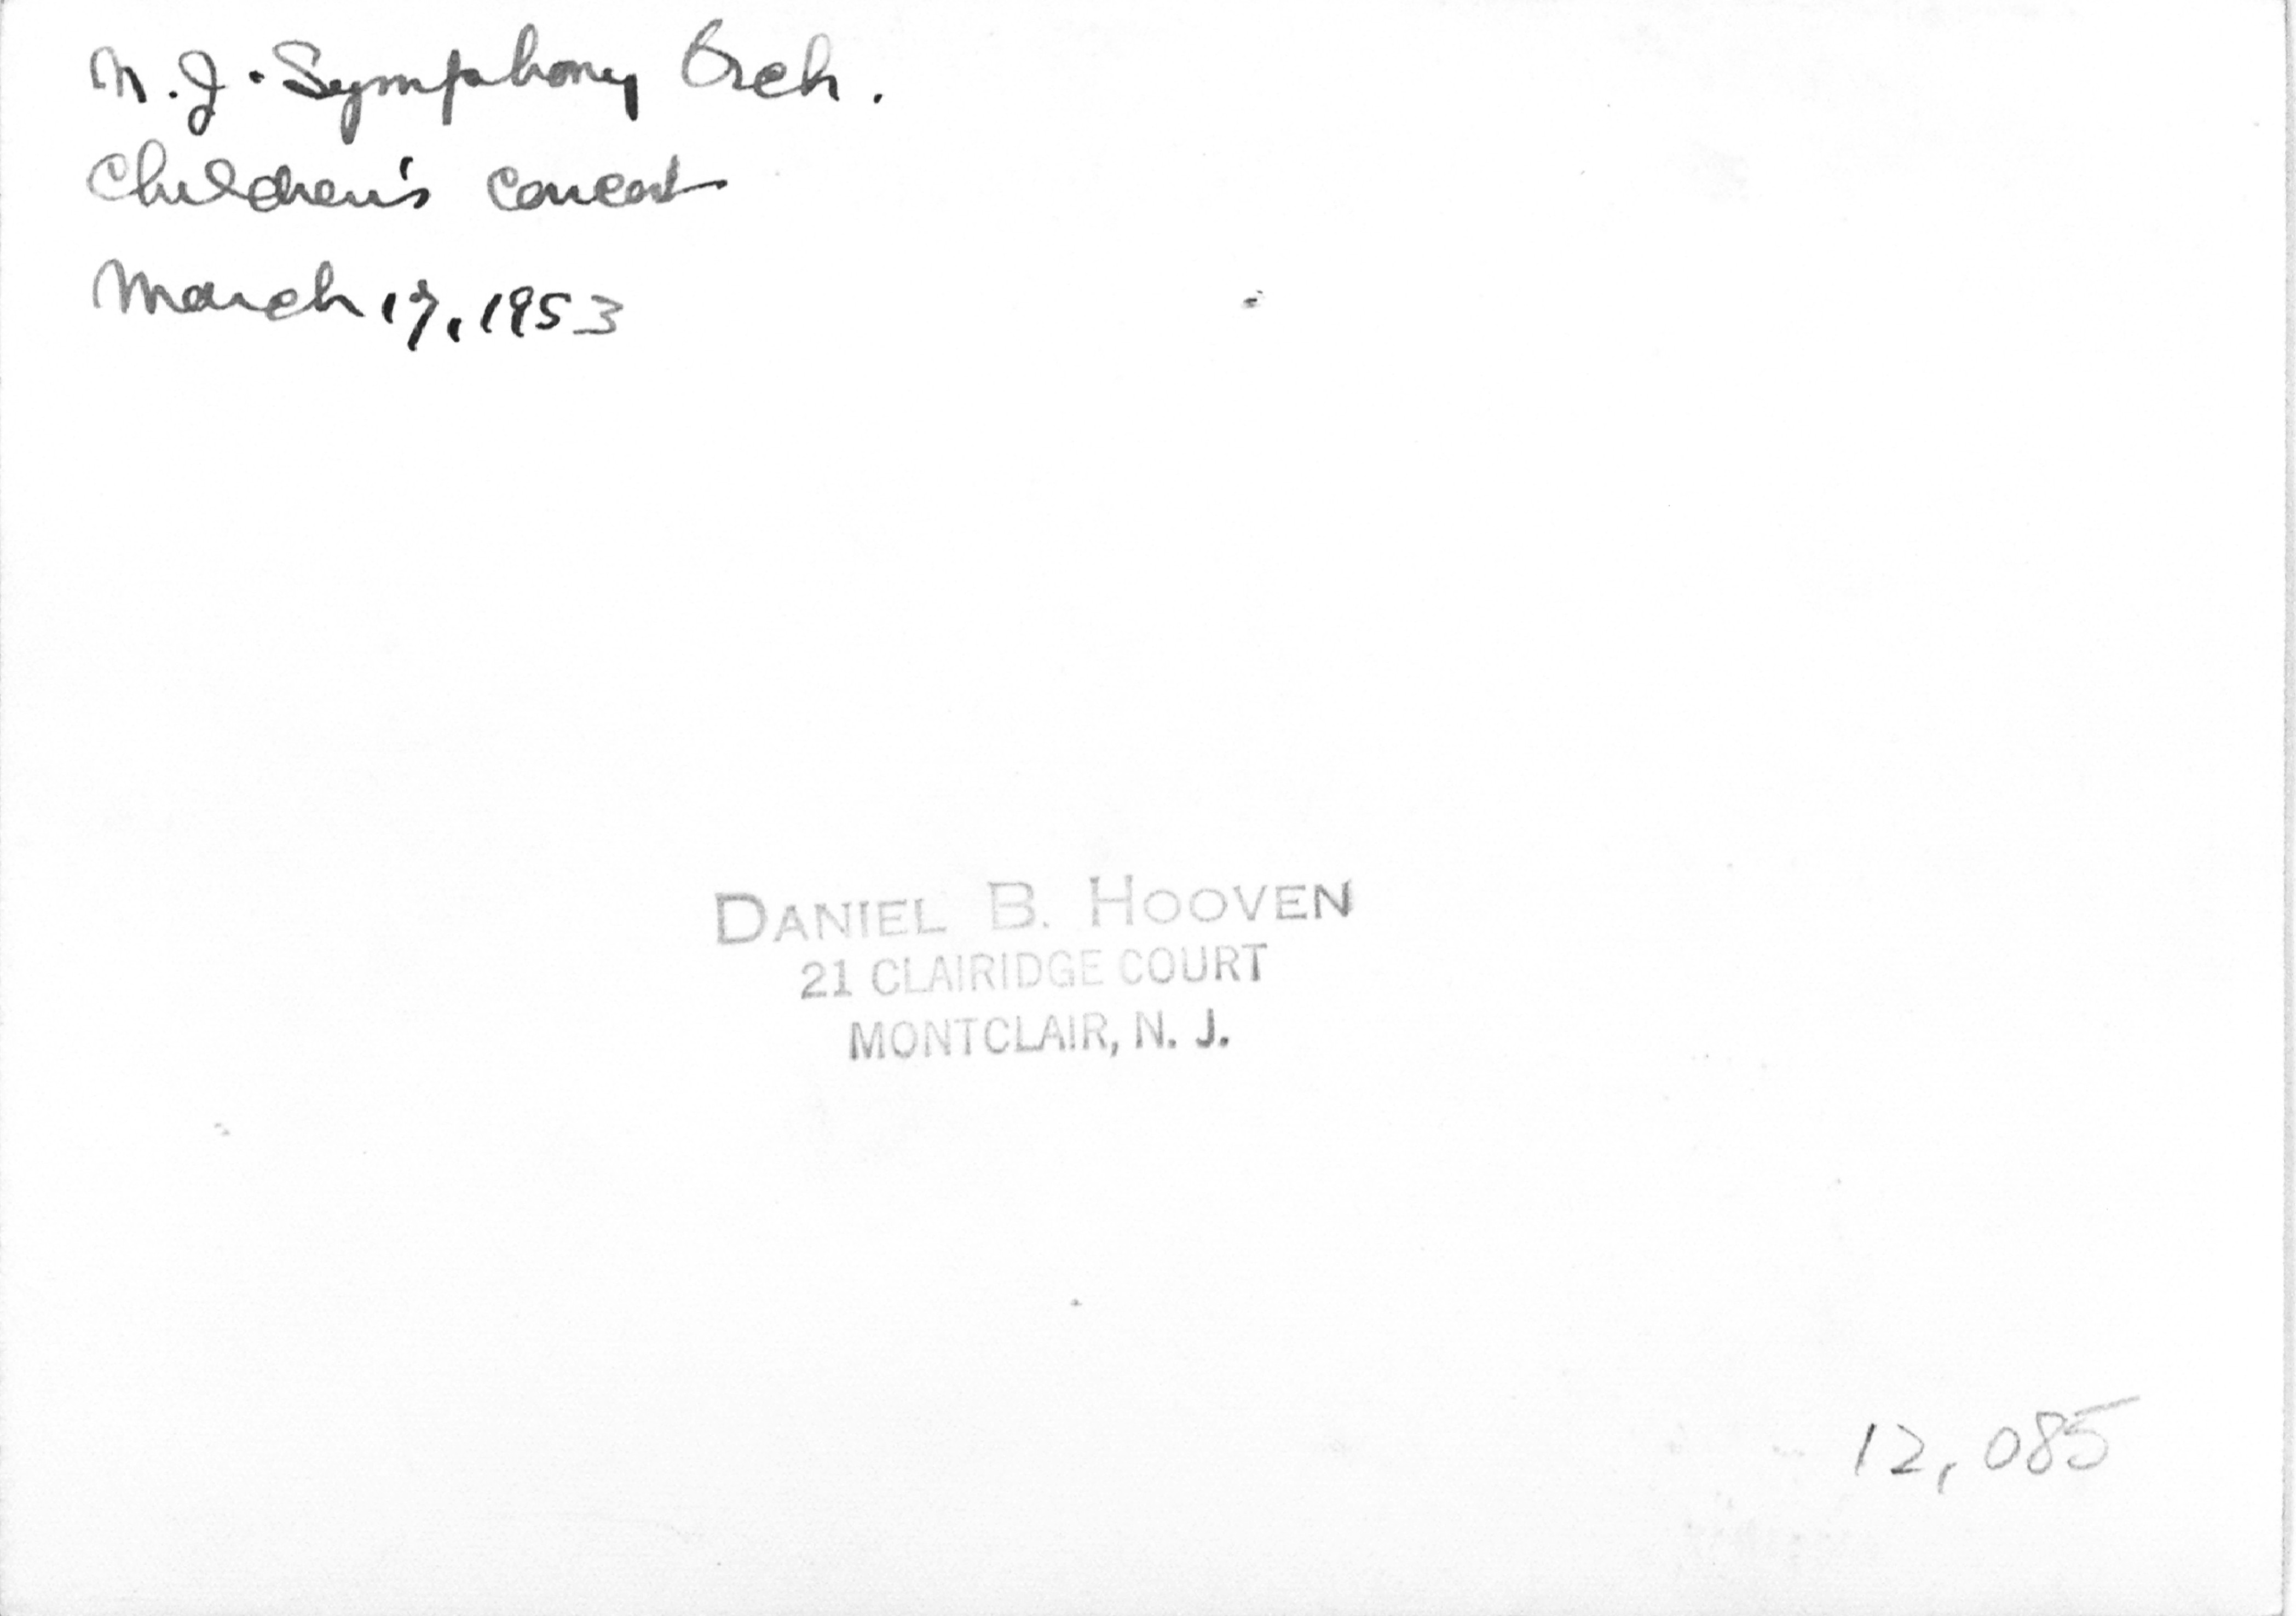 N.J. Symphony Orch.
Children's Concert
March 17, 1953
DANIEL B. HOOVEN
21 CLAIRIDGE COURT
MONTCLAIR, N. J.
12,085